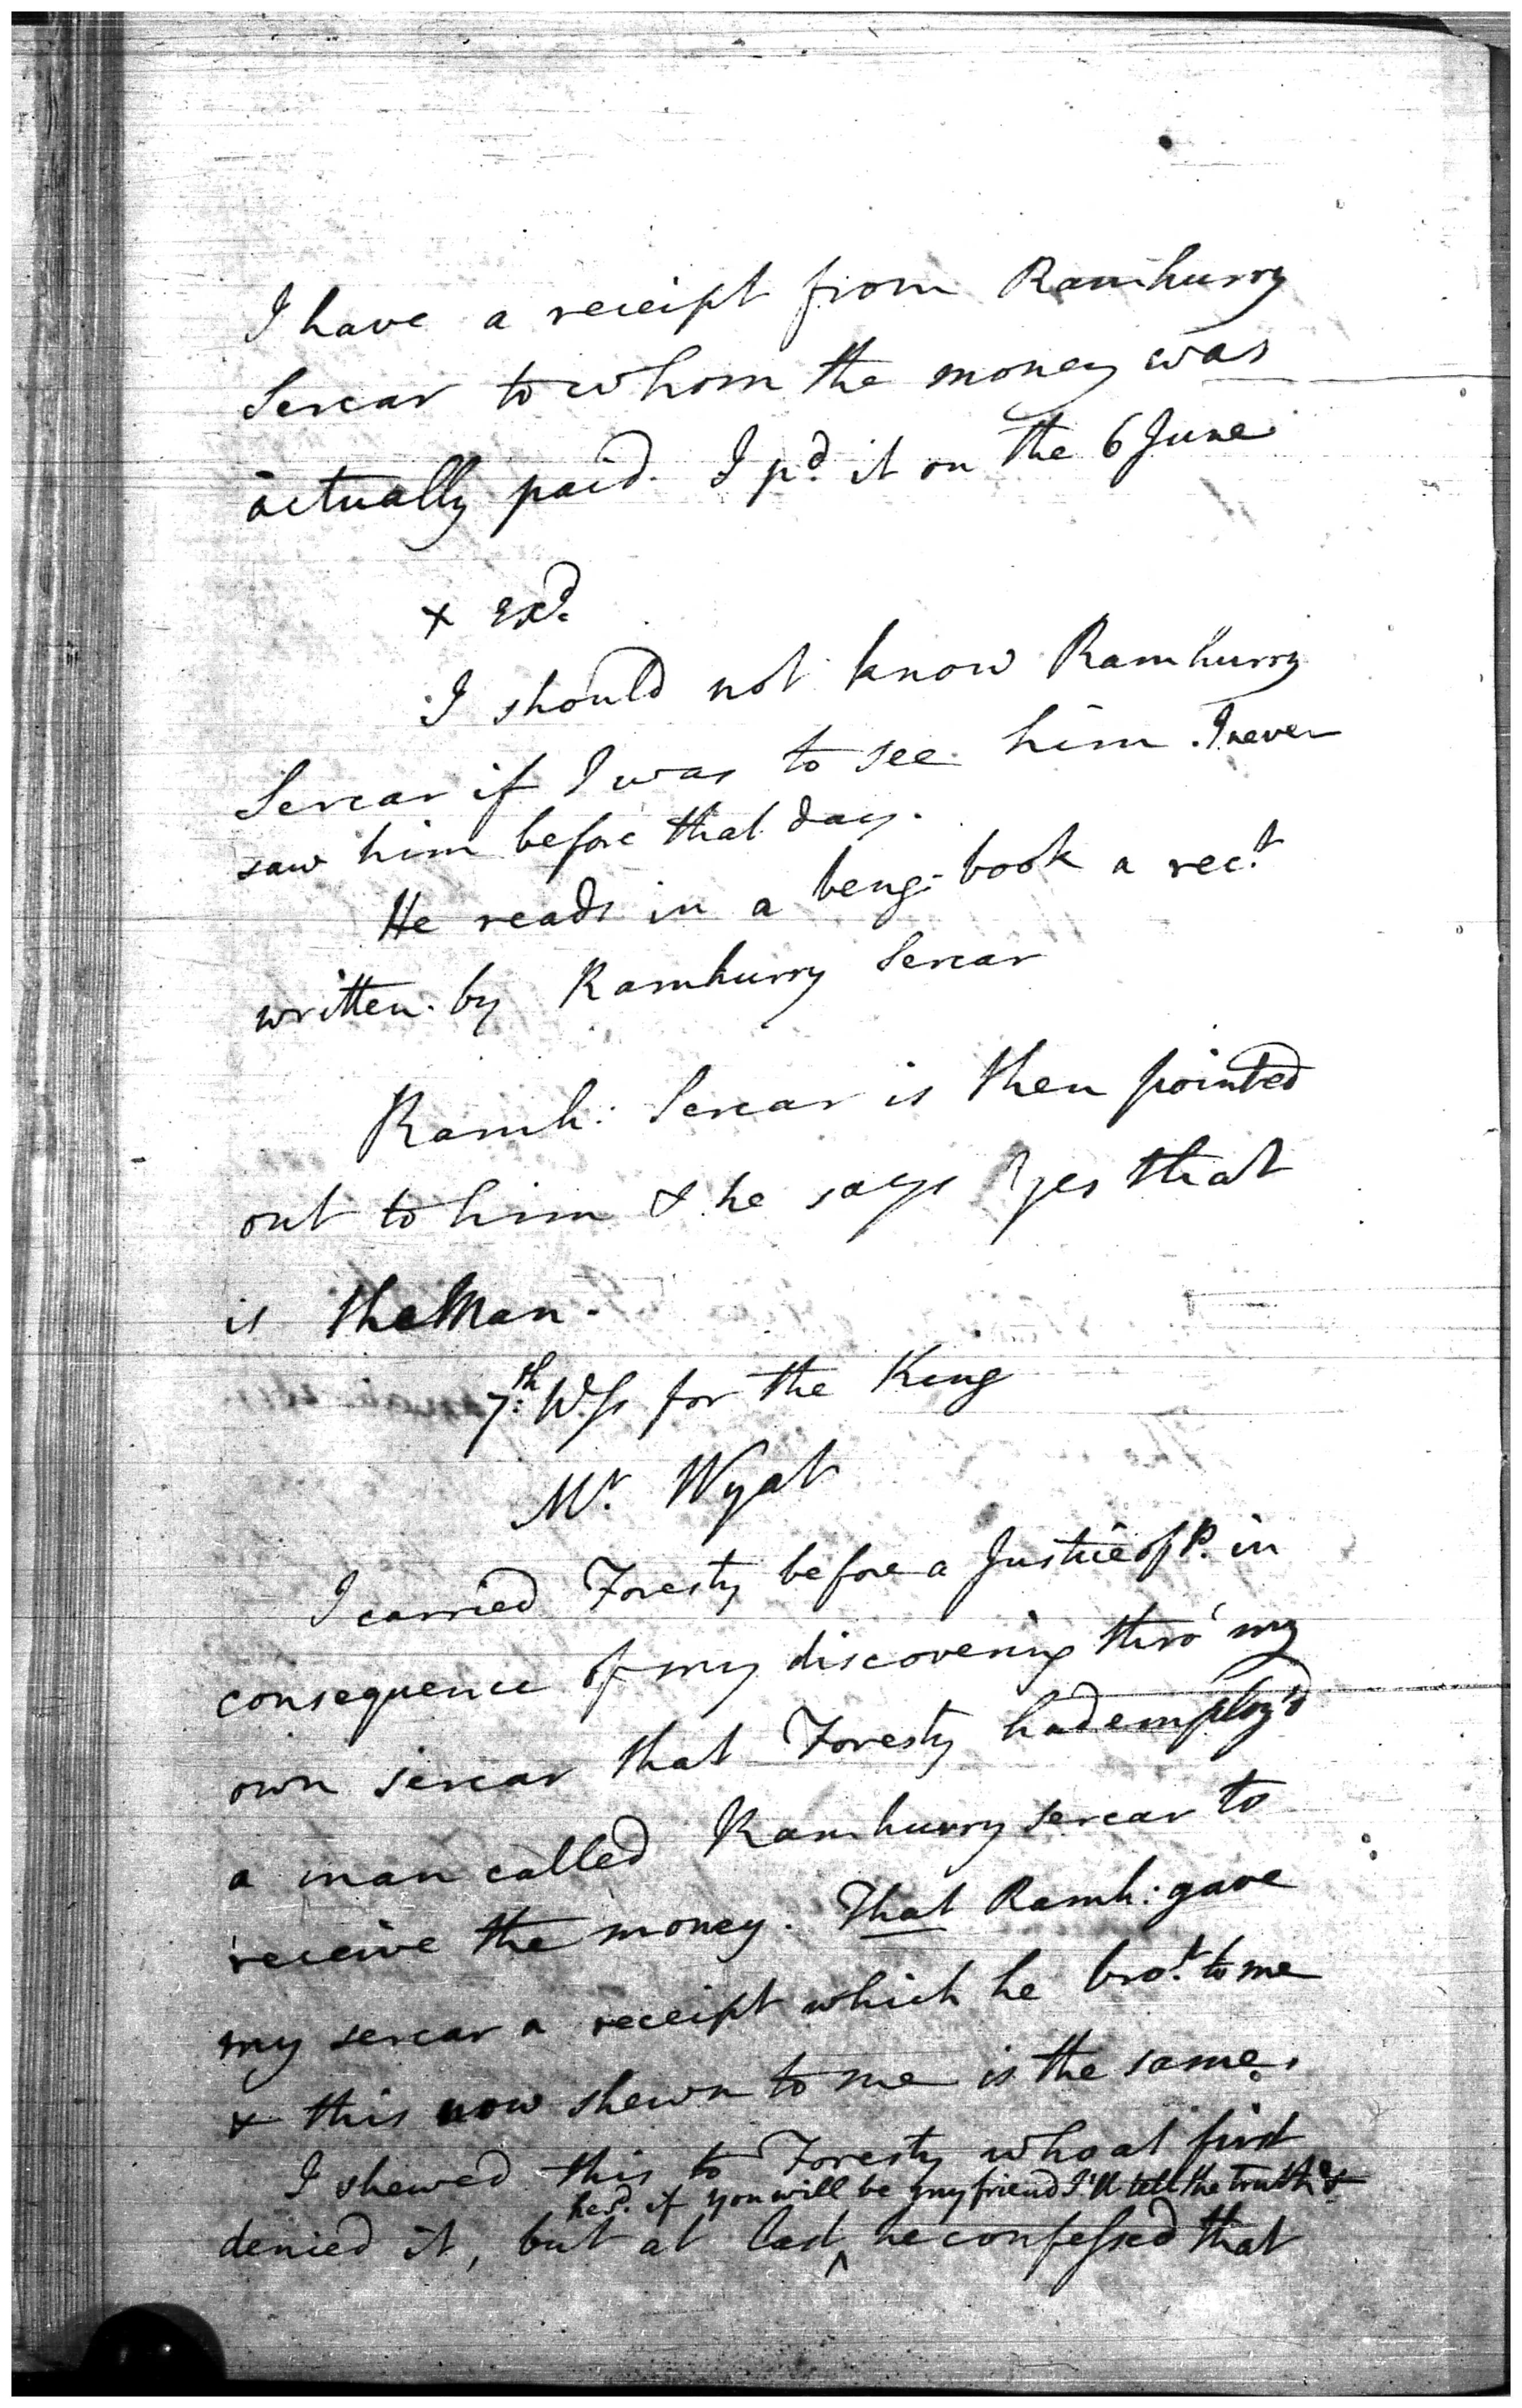 I have a receipt from Ramhurry
Sercar to whom the money was
actually paid. I pd. it on the 6 June
x exd.
I should not know Ramhurry
Sercar if I was to see him. I never
saw him before that day.
He reads in a beng: book a rect.
written by Ramhurry Sercar
Ramh: Sercar is then pointed
out to him & he says yes that
is the Man.
7th: Wss for the King
Mr. Wyat
I carried Foresty before a Justice of P. in
consequence of my discovering thro' my
own sercar that Foresty had employ'd
a man called Ramhurry sercar to
receive the money. That Ramh: gave
my sercar a receipt which he brot. to me
& this now shewn to me is the same.
I shewed this to Foresty who at first
he sd. if you will be my friend I'll tell the truth &
denied it, but at last ^ he confessed that